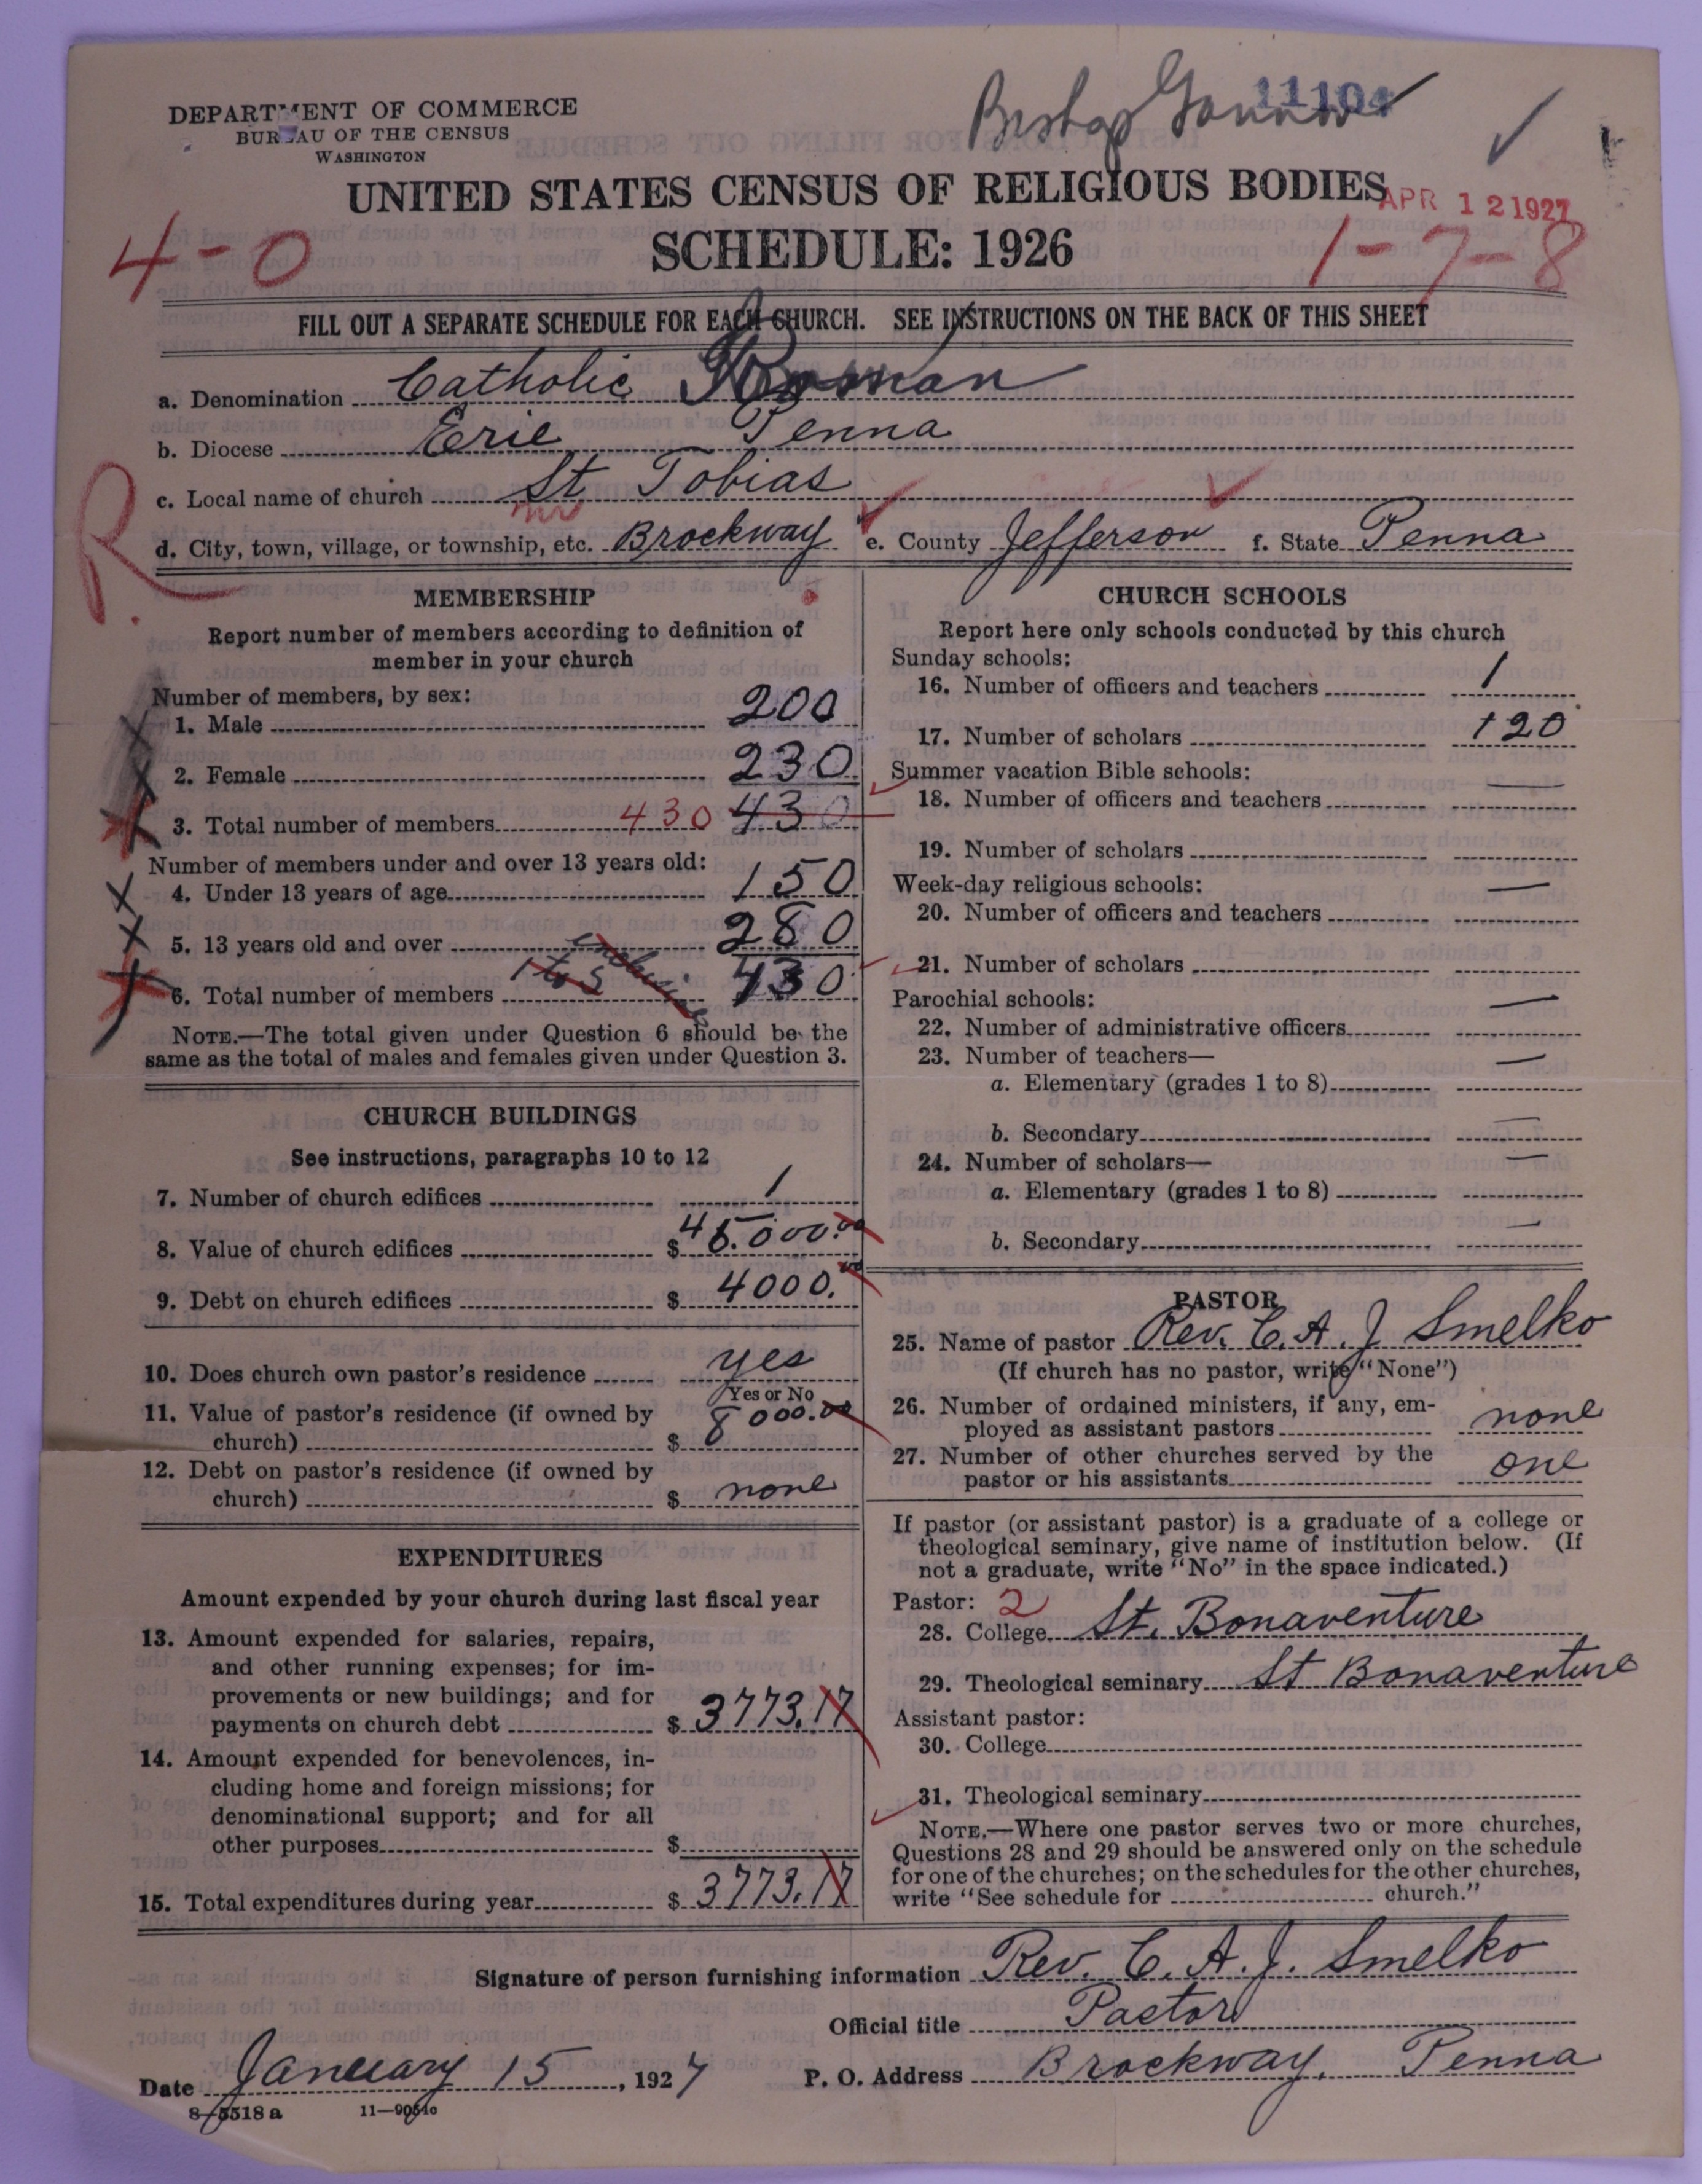 11104
Bishop
DEPARTMENT OF COMMERCE
BUREAU OF THE CENSUS
WASHINGTON
UNITED STATES CENSUS OF RELIGIOUS BODIES
APR 12 1927
4-0
SCHEDULE: 1926
1-7-8
FILL OUT A SEPARATE SCHEDULE FOR EACH CHURCH. SEE INSTRUCTIONS ON THE BACK OF THIS SHEET
a. Denomination Catholic Roman
b. Diocese Erie Penna
c. Local name of church St Tobias
R
d. City, town, village, or township, etc. Brockway e. County Jefferson f. State Penna
MEMBERSHIP
Report number of members according to definition of
member in your church
Number of members, by sex:
1. Male 200
2. Female 230
3. Total number of members 430 430
Number of members under and over 13 years old:
4. Under 13 years of age 150
5. 13 years old and over 280
6. Total number of members 430
NOTE.—The total given under Question 6 should be the
same as the total of males and females given under Question 3.
CHURCH BUILDINGS
See instructions, paragraphs 10 to 12
7. Number of church edifices 1
8. Value of church edifices $ 45.000.00
9. Debt on church edifices $ 4000.00
10. Does church own pastor's residence yes
Yes or No
11. Value of pastor's residence (if owned by
church) $ 8000.00
12. Debt on pastor's residence (if owned by
church) $ none
EXPENDITURES
Amount expended by your church during last fiscal year
13. Amount expended for salaries, repairs,
and other running expenses; for im-
provements or new buildings; and for
payments on church debt $ 3773.17
14. Amount expended for benevolences, in-
cluding home and foreign missions; for
denominational support; and for all
other purposes $
15. Total expenditures during year $ 3773.17
CHURCH SCHOOLS
Report here only schools conducted by this church
Sunday schools:
16. Number of officers and teachers 1
17. Number of scholars 120
Summer vacation Bible schools:
18. Number of officers and teachers —
19. Number of scholars
Week-day religious schools:
20. Number of officers and teachers —
21. Number of scholars
Parochial schools:
22. Number of administrative officers —
23. Number of teachers—
a. Elementary (grades 1 to 8) —
b. Secondary —
24. Number of scholars—
a. Elementary (grades 1 to 8) —
b. Secondary —
PASTOR
25. Name of pastor Rev. C. A. J Smelko
(If church has no pastor, write "None")
26. Number of ordained ministers, if any, em-
ployed as assistant pastors none
27. Number of other churches served by the
pastor or his assistants one
If pastor (or assistant pastor) is a graduate of a college or
theological seminary, give name of institution below. (If
not a graduate, write "No" in the space indicated.)
Pastor: 2
28. College St. Bonaventure
29. Theological seminary St Bonaventure
Assistant pastor:
30. College
31. Theological seminary
NOTE.—Where one pastor serves two or more churches,
Questions 28 and 29 should be answered only on the schedule
for one of the churches; on the schedules for the other churches,
write "See schedule for church."
Signature of person furnishing information Rev. C. A. J. Smelko
Official title Pastor
Date January 15, 1927 P. O. Address Brockway, Penna
8-5518 a 11—9051c